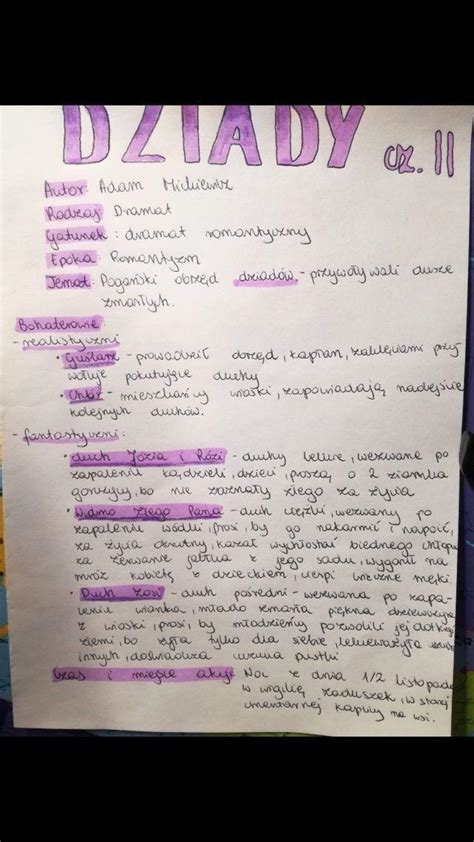 DZIADY cz. II
Autor: Adam Mickiewicz
Rodzaj Dramat
Gatunek: dramat romantyczny
Epoka: Romantyzm
Temat: Pogański obrzęd dziadów - przywoływali dusze
zmarłych.
Bohaterowie:
- realistyczni
• Guślarz - prowadził obrzęd, kapłan, zaklęciami przy
wołuje pokutujące duchy
• Chór - mieszkańcy wioski, zapowiadają nadejście
kolejnych duchów.
- fantastyczni:
• duch Józia i Rózi - duchy lekkie, wezwane po
zapaleniu kądzieli, dzieci, proszą o 2 ziarnka
gorczycy, bo nie zaznały złego za życia
• Widmo Złego Pana - duch ciężki, wezwany po
zapaleniu wódki, prosi, by go nakarmić i napoić,
za życia okrutny, kazał wychłostać biednego chłopa
za zerwanie jabłka z jego sadu, wygonił na
mróz kobietę z dzieckiem, cierpi wieczne męki.
• Duch Zosi - duch pośredni - wezwana po zapa-
leniu wianka, młodo zmarła piękna dziewczyna
z wioski, prosi, by młodzieńcy pozwolili jej dotknąć
ziemi, bo żyła tylko dla siebie, lekceważyła
innych, doświadcza uczucia pustki
Czas i miejsce akcji Noc z dnia 1/2 listopada
w wigilię zaduszek, w starej
cmentarnej kaplicy na wsi.